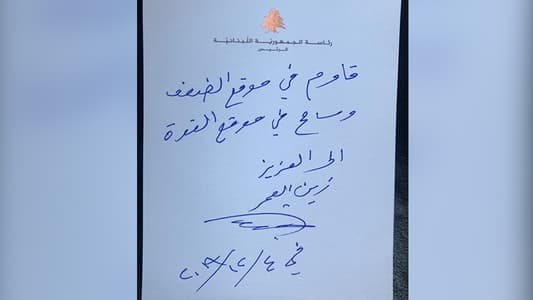 رئاسة الجمهورية اللبنانية
الرئيس
قاوم في موقع الضعف
وسامح في موقع القوة
الى العزيز
زين العمر
في